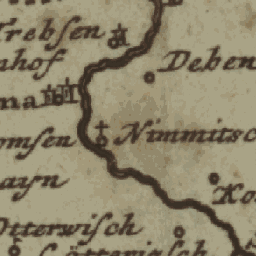 Trebsen
nhof
Deben
na
omsen
Nimmitsc
ayn
Ko
Otterwisch